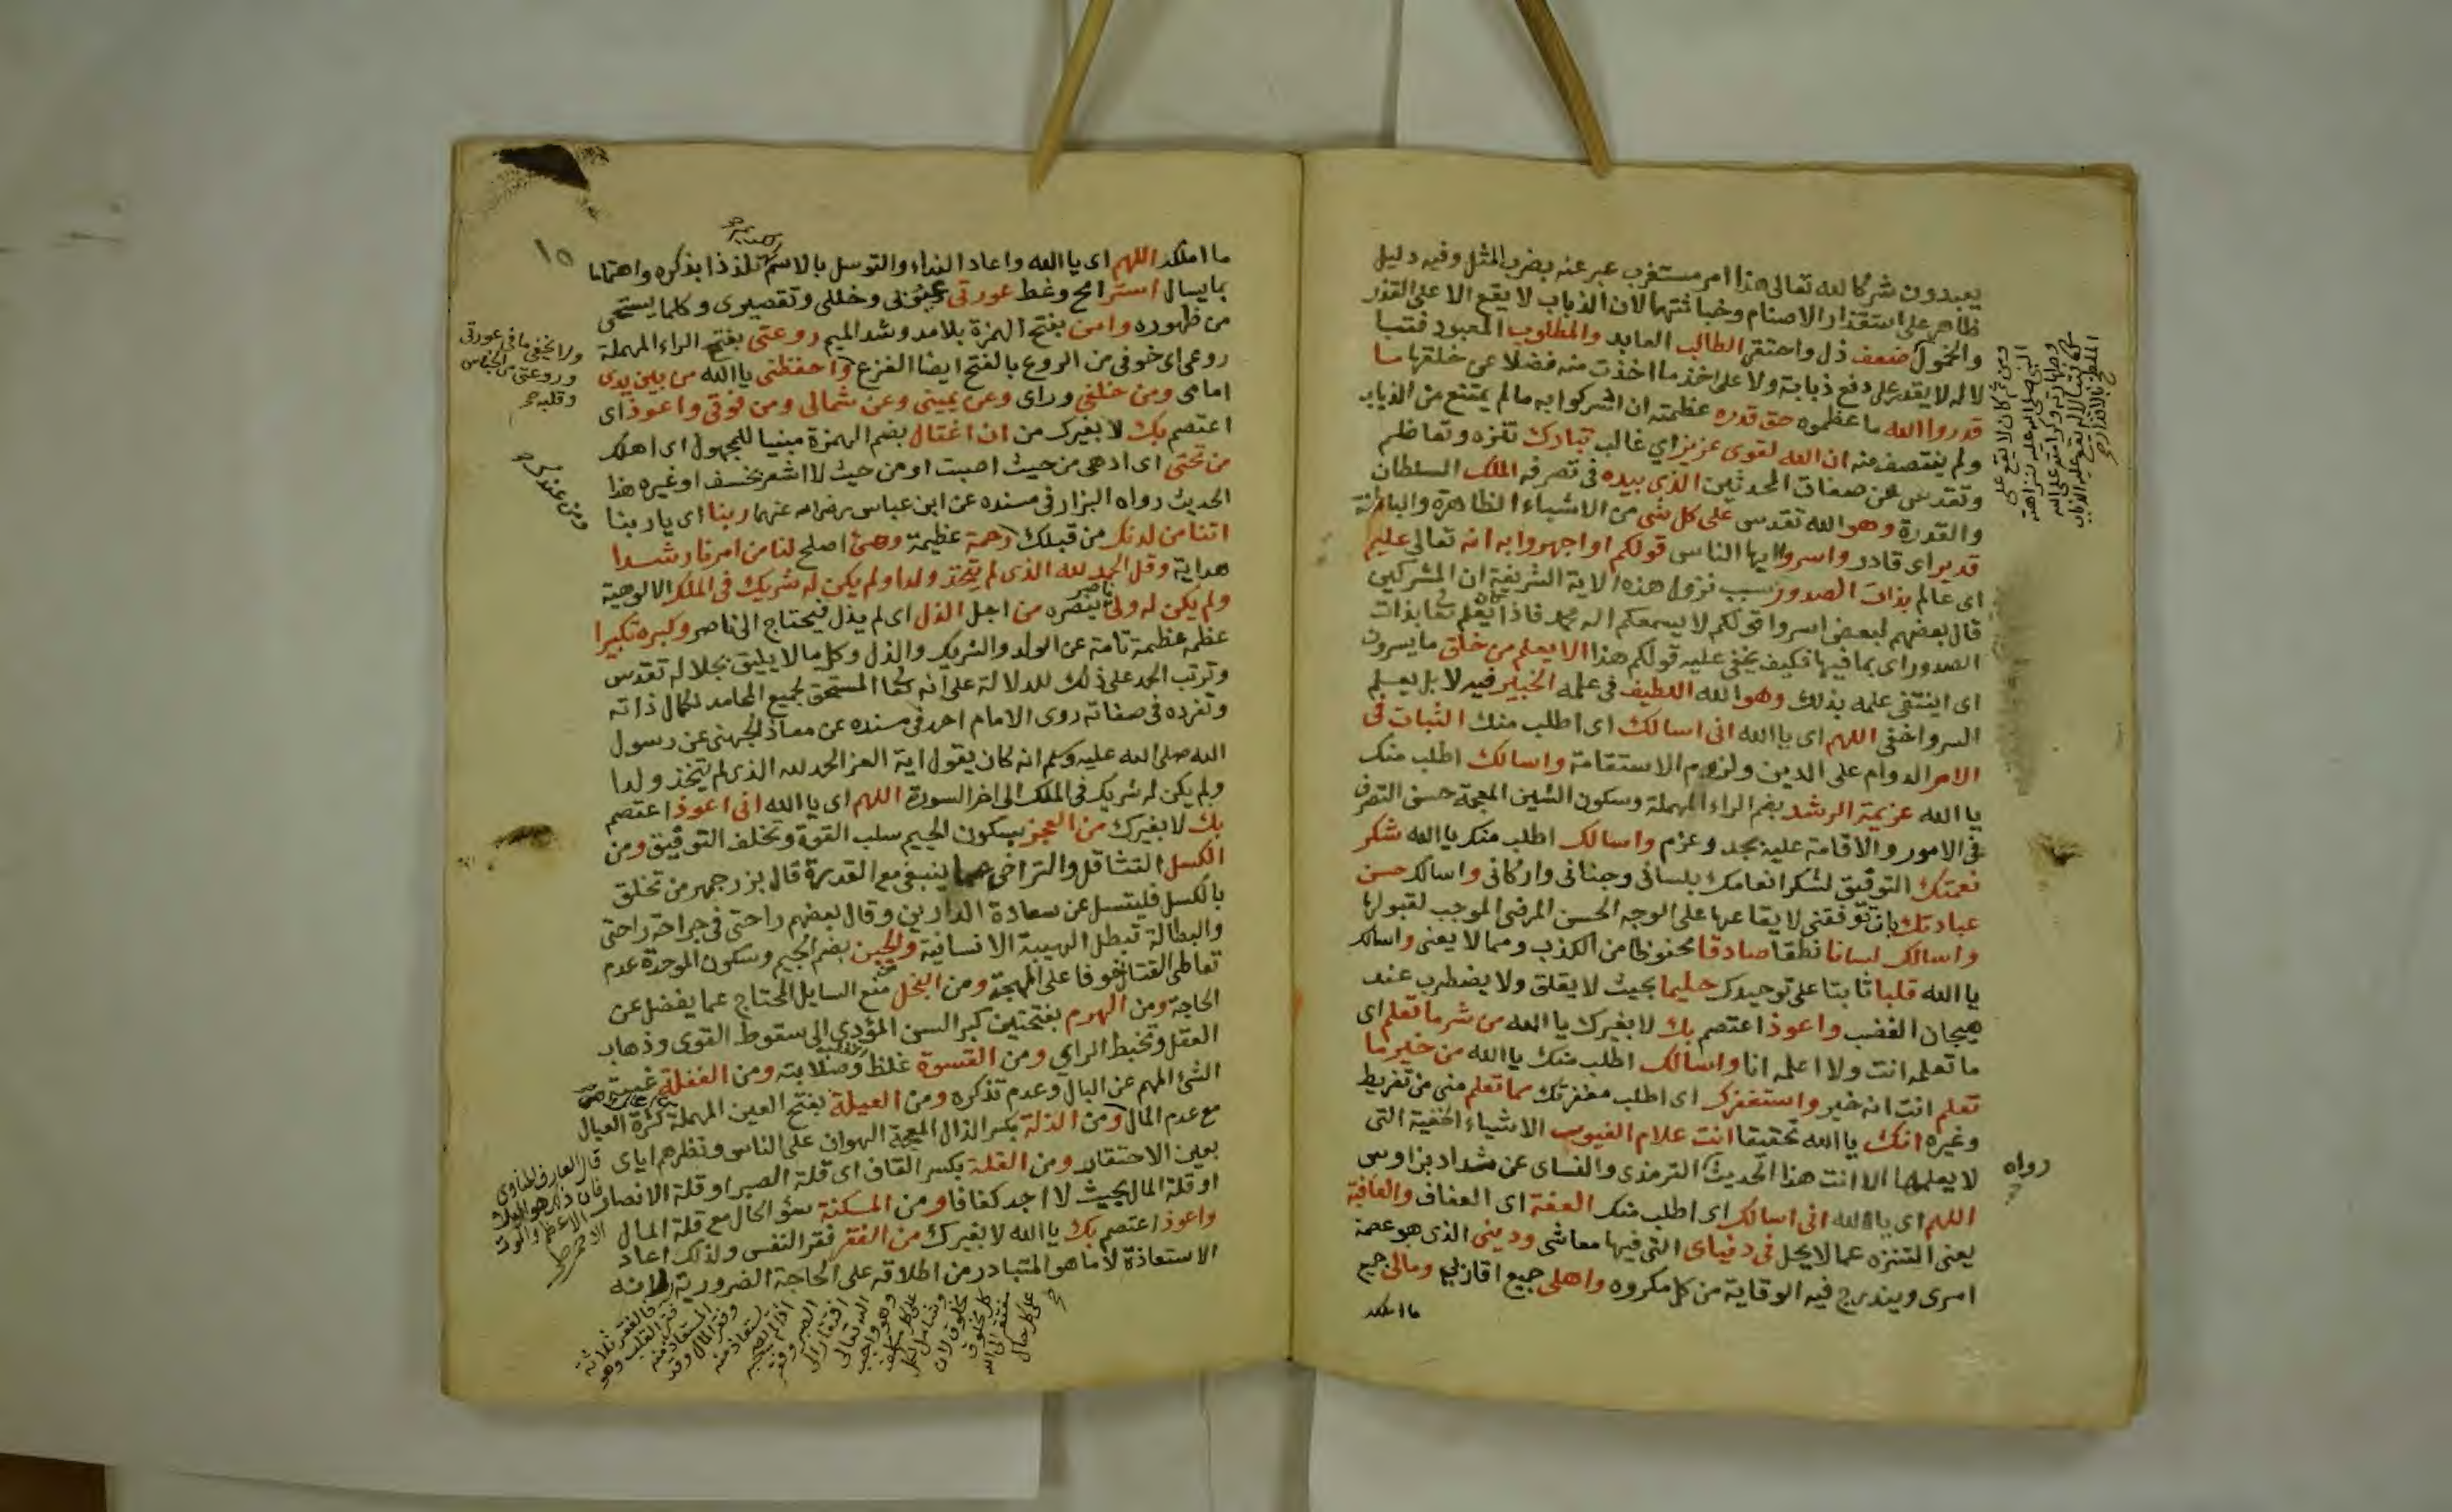 يعبدون شركا لله تعالى هذا امر مستغرب عبر عنه بضرب المثل وفيه دليل
ظاهر على استقذار الاصنام وخباثتها لان الذباب لا يقع الا على القذر
والخمول ضعف ذل واحتقر الطالب العابد والمطلوب المعبود فتبا
لاله لا يقدر على دفع ذبابة ولا على اخذ ما اخذت منه فضلا عن خلقها ما
قدروا الله ما عظموه حق قدره عظمته ان اشركوا به مالم يمتنع من الذباب
ولم ينتصف منه ان الله لقوى عزيز اي غالب تبارك تنزه وتعاظم
وتقدس عن صفات المحدثين الذى بيده فى تصرفه الملك السلطان
والقدرة وهو الله تقدس على كل شى من الاشياء الظاهرة والباطنة
قدير اى قادر واسروا ايها الناس قولكم او اجهروا به انه تعالى عليم
اى عالم بذات الصدور سبب نزول هذه الاية الشريفة ان المشركين
قال بعضهم لبعض اسروا قولكم لا يسمعكم اله محمد فاذا كان يعلم بذات
الصدور اى بما فيها فكيف يخفى عليه قولكم هذا الا يعلم من خلق ما يسرون
اى اينتفى علمه بذلك وهو الله اللطيف فى علمه الخبير فيه لا بل يعلم
السر واخفى اللهم اى يا الله انى اسالك اى اطلب منك الثبات فى
الامر الدوام على الدين ولزوم الاستقامة واسالك اطلب منك
يا الله عزيمة الرشد بضم الراء المهملة وسكون الشين المعجمة حسن التصرف
فى الامور والاقامة عليه بجد وعزم واسالك اطلب منك يا الله شكر
نعمتك التوفيق لشكر انعامك بلسانى وجنانى واركانى واسالك حسن
عبادتك بان توفقنى لايقاعها على الوجه الحسن المرضى الموجب لقبولها
واسالك لسانا نطقا صادقا محفوظا من الكذب ومما لا يعنى واسالك
يا الله قلبا ثابتا على توحيدك حليما بحيث لا يقلق ولا يضطرب عند
هيجان الغضب واعوذ اعتصم بك لا بغيرك يا الله من شر ما تعلم اى
ما تعلمه انت ولا اعلمه انا واسالك اطلب منك يا الله من خير ما
تعلم انت انه خير واستغفرك اى اطلب مغفرتك مما تعلم منى من تفريط
وغيره انك يا الله تحقيقا انت علام الغيوب الاشياء الخفية التى
لا يعلمها الا انت هذا الحديث الترمذى والنساى عن شداد بن اوس
رواه
اللهم اى يا الله انى اسالك اى اطلب منك العفة اى العفاف والعافية
يعنى التنزه عما لا يحل فى دنياى التى فيها معاشى ودينى الذى هو عصمة
امرى ويندرج فيه الوقاية من كل مكروه واهلى جميع اقاربى ومالى جميع
ما املك
ومن ثم كان لا يقع على
النبى صلى الله عليه لنزاهته
وطهارته وكرامته على الله
١٥
ما املكه اللهم اى يا الله واعاد النداء والتوسل بالاسم تلذذا بذكره واهتماما
بما يسال استر امح وغط عورتى عيوبى وخللى وتقصيرى وكلما يستحى
من ظهوره وامن بفتح الهمزة بلا مد وشد الميم روعتى بفتح الراء المهملة
روعى اى خوفى من الروع بالفتح ايضا الفزع واحفظنى يا الله من بين يدى
امامى ومن خلفى وراى وعن يمينى وعن شمالى ومن فوقى واعوذ اى
اعتصم بك لا بغيرك من ان اغتال بضم الهمزة مبنيا للمجهول اى اهلك
من تحتى اى ادهى من حيث اصبت او من حيث لا اشعر بخسف او غيره هذا
الحديث رواه البزار فى مسنده عن ابن عباس رضى الله عنهما ربنا اى يا ربنا
اتنا من لدنك من قبلك رحمة عظيمة وهئ اصلح لنا من امرنا رشدا
هداية وقل الحمد لله الذى لم يتخذ ولدا ولم يكن له شريك فى الملك الالوهية
ولم يكن له ولى ناصر ينصره من اجل الذل اى لم يذل فيحتاج الى ناصر وكبره تكبيرا
عظمه عظيمة تامة عن الولد والشريك والذل وكل ما لا يليق بجلاله تقدس
وترتب الحمد على ذلك للدلالة على انه المستحق لجميع المحامد لكمال ذاته
وتفرده فى صفاته روى الامام احمد فى مسنده عن معاذ الجهنى عن رسول
الله صلى الله عليه وسلم انه كان يقول اية العز الحمد لله الذى لم يتخذ ولدا
ولم يكن له شريك فى الملك الى اخر السورة اللهم اى يا الله انى اعوذ اعتصم
بك لا بغيرك من العجز بسكون الجيم سلب القوة وتخلف التوفيق ومن
الكسل التثاقل والتراخى عما ينبغى مع القدرة قال بزرجمهر من تخلق
بالكسل فليتسل عن سعادة الدارين وقال بعضهم راحتى فى جراحة راحتى
والبطالة تبطل الهيبة الانسانية والجبن بضم الجيم وسكون الموحدة عدم
تعاطى القتال خوفا على المهجة ومن البخل منع السايل المحتاج عما يفضل عن
الحاجة ومن الهرم بفتحتين كبر السن المؤدى الى سقوط القوى وذهاب
العقل وتخبط الراي ومن القسوة غلظ القلب وصلابته ومن الغفلة غيبة
الشئ المهم عن البال وعدم تذكره ومن العيلة بفتح العين المهملة كثرة العيال
مع عدم المال ومن الذلة بكسر الذال المعجمة الهوان على الناس ونظرهم اياى
بعين الاحتقار ومن القلة بكسر القاف اى قلة الصبر او قلة الانصار
او قلة المال بحيث لا اجد كفافا ومن المسكنة سؤ الحال مع قلة المال
واعوذ اعتصم بك يا الله لا بغيرك من الفقر فقر النفس ولذلك اعاد
الاستعاذة لا ما هو المتبادر من اطلاقه على الحاجة الضرورية فانه
ولا يخفى ما فى عورتى
وروعتى من الجناس
وقلبه
ومن عندك
قال العارف المناوى